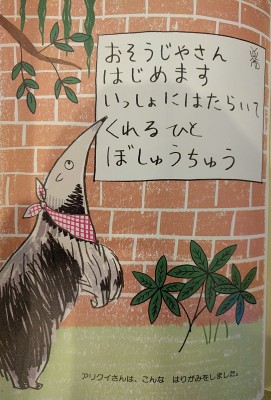 おそうじやさん
はじめます
いっしょにはたらいて
くれるひと
ぼしゅうちゅう
アリクイさんは、こんな はりがみをしました。